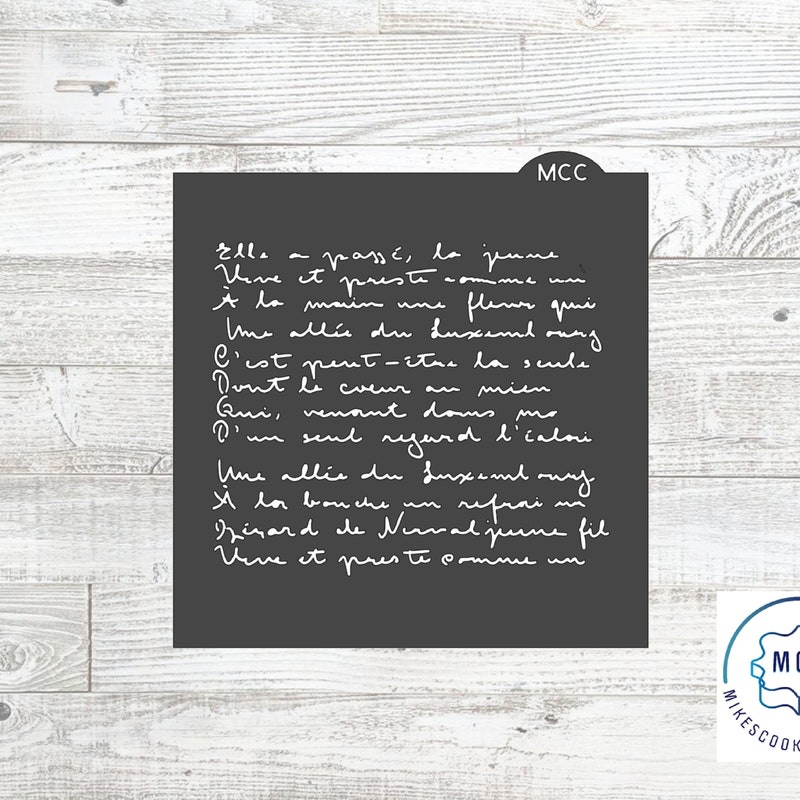 MCC
Elle a passé, la jeune
Vive et preste comme un
À la main une fleur qui
Une allée du Luxembourg
C'est peut-être la seule
Dont le cœur au mien
Qui, venant dans ma
D'un seul regard l'éclai
Une allée du Luxembourg
À la bouche un refrain
Gérard de Nerval jeune fil
Vive et preste comme un
MC
MIKESCOOK